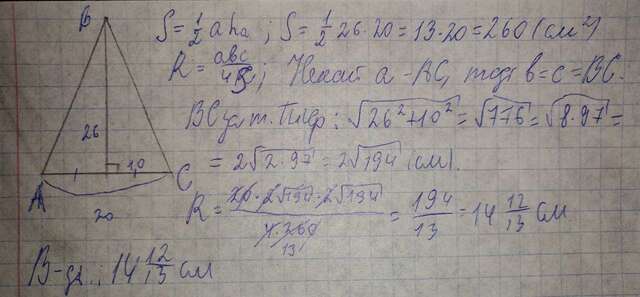 B
26
10
A
C
20
S = 1/2 a hₐ ; S = 1/2 26·20 = 13·20 = 260 (см²)
R = abc/4S ; Нехай a - AC, тоді b = c = BC.
BC за т. Піфр: √26²+10² = √776 = √8·97 =
= 2√2·97 = 2√194 (см).
R = 20·2√194·2√194/4·260 = 194/13 = 14 12/13 см
13
В-дь: 14 12/13 см